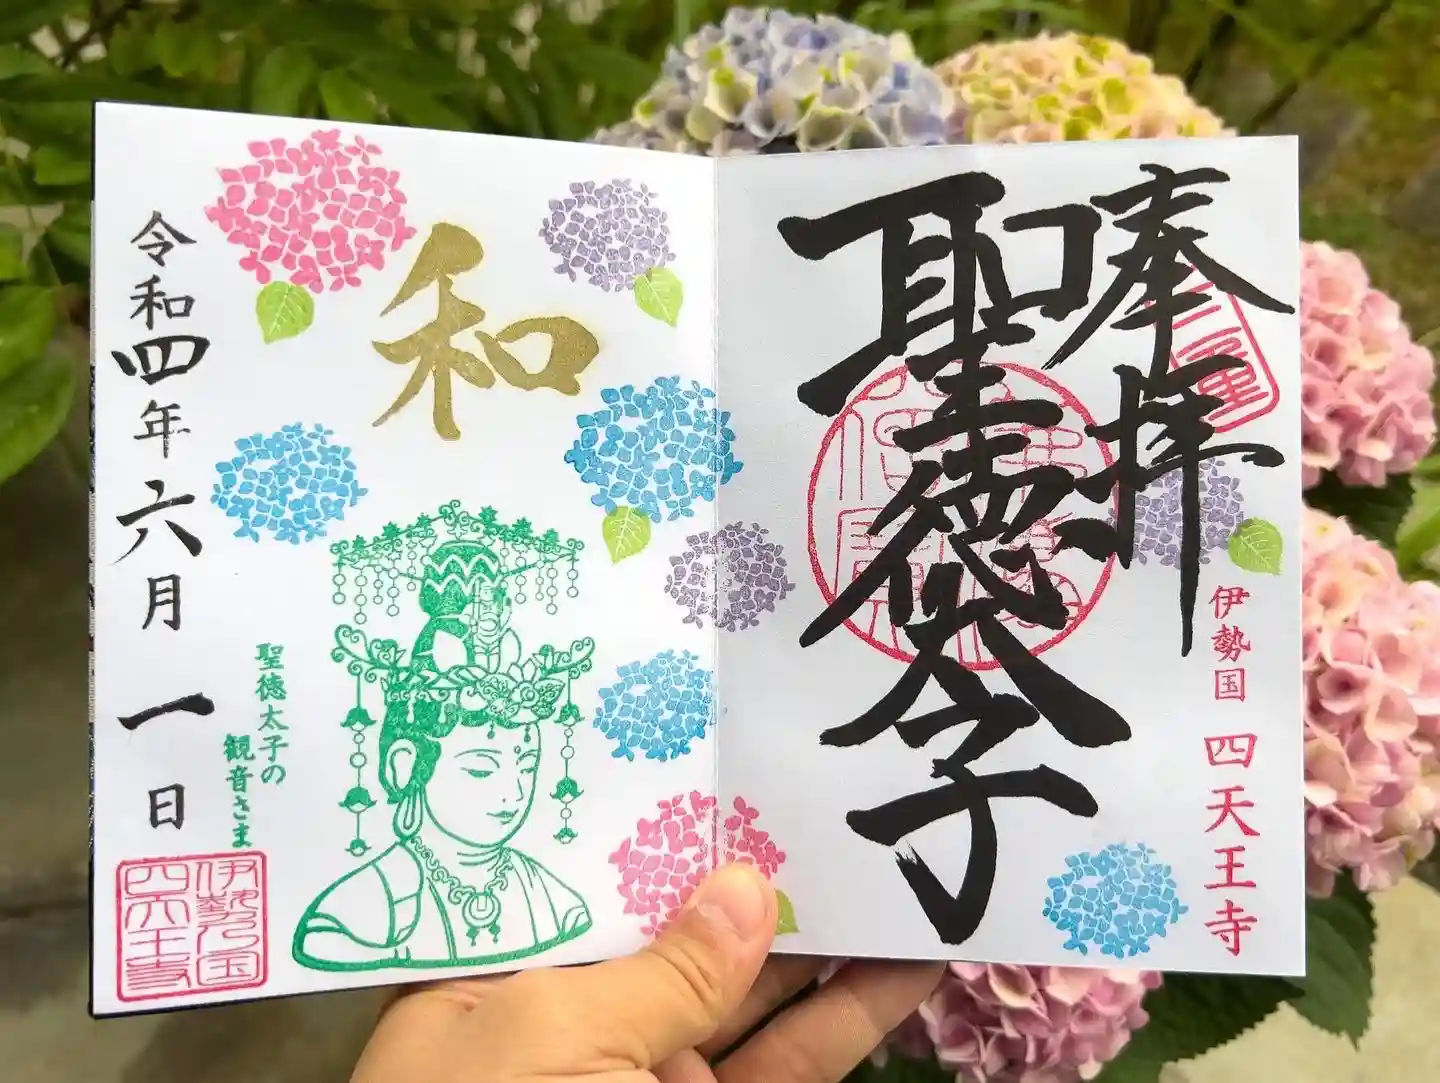 奉拝
聖徳太子
伊勢国 四天王寺
三重
和
聖徳太子の
観音さま
令和四年六月一日
伊勢乃国
四天王寺